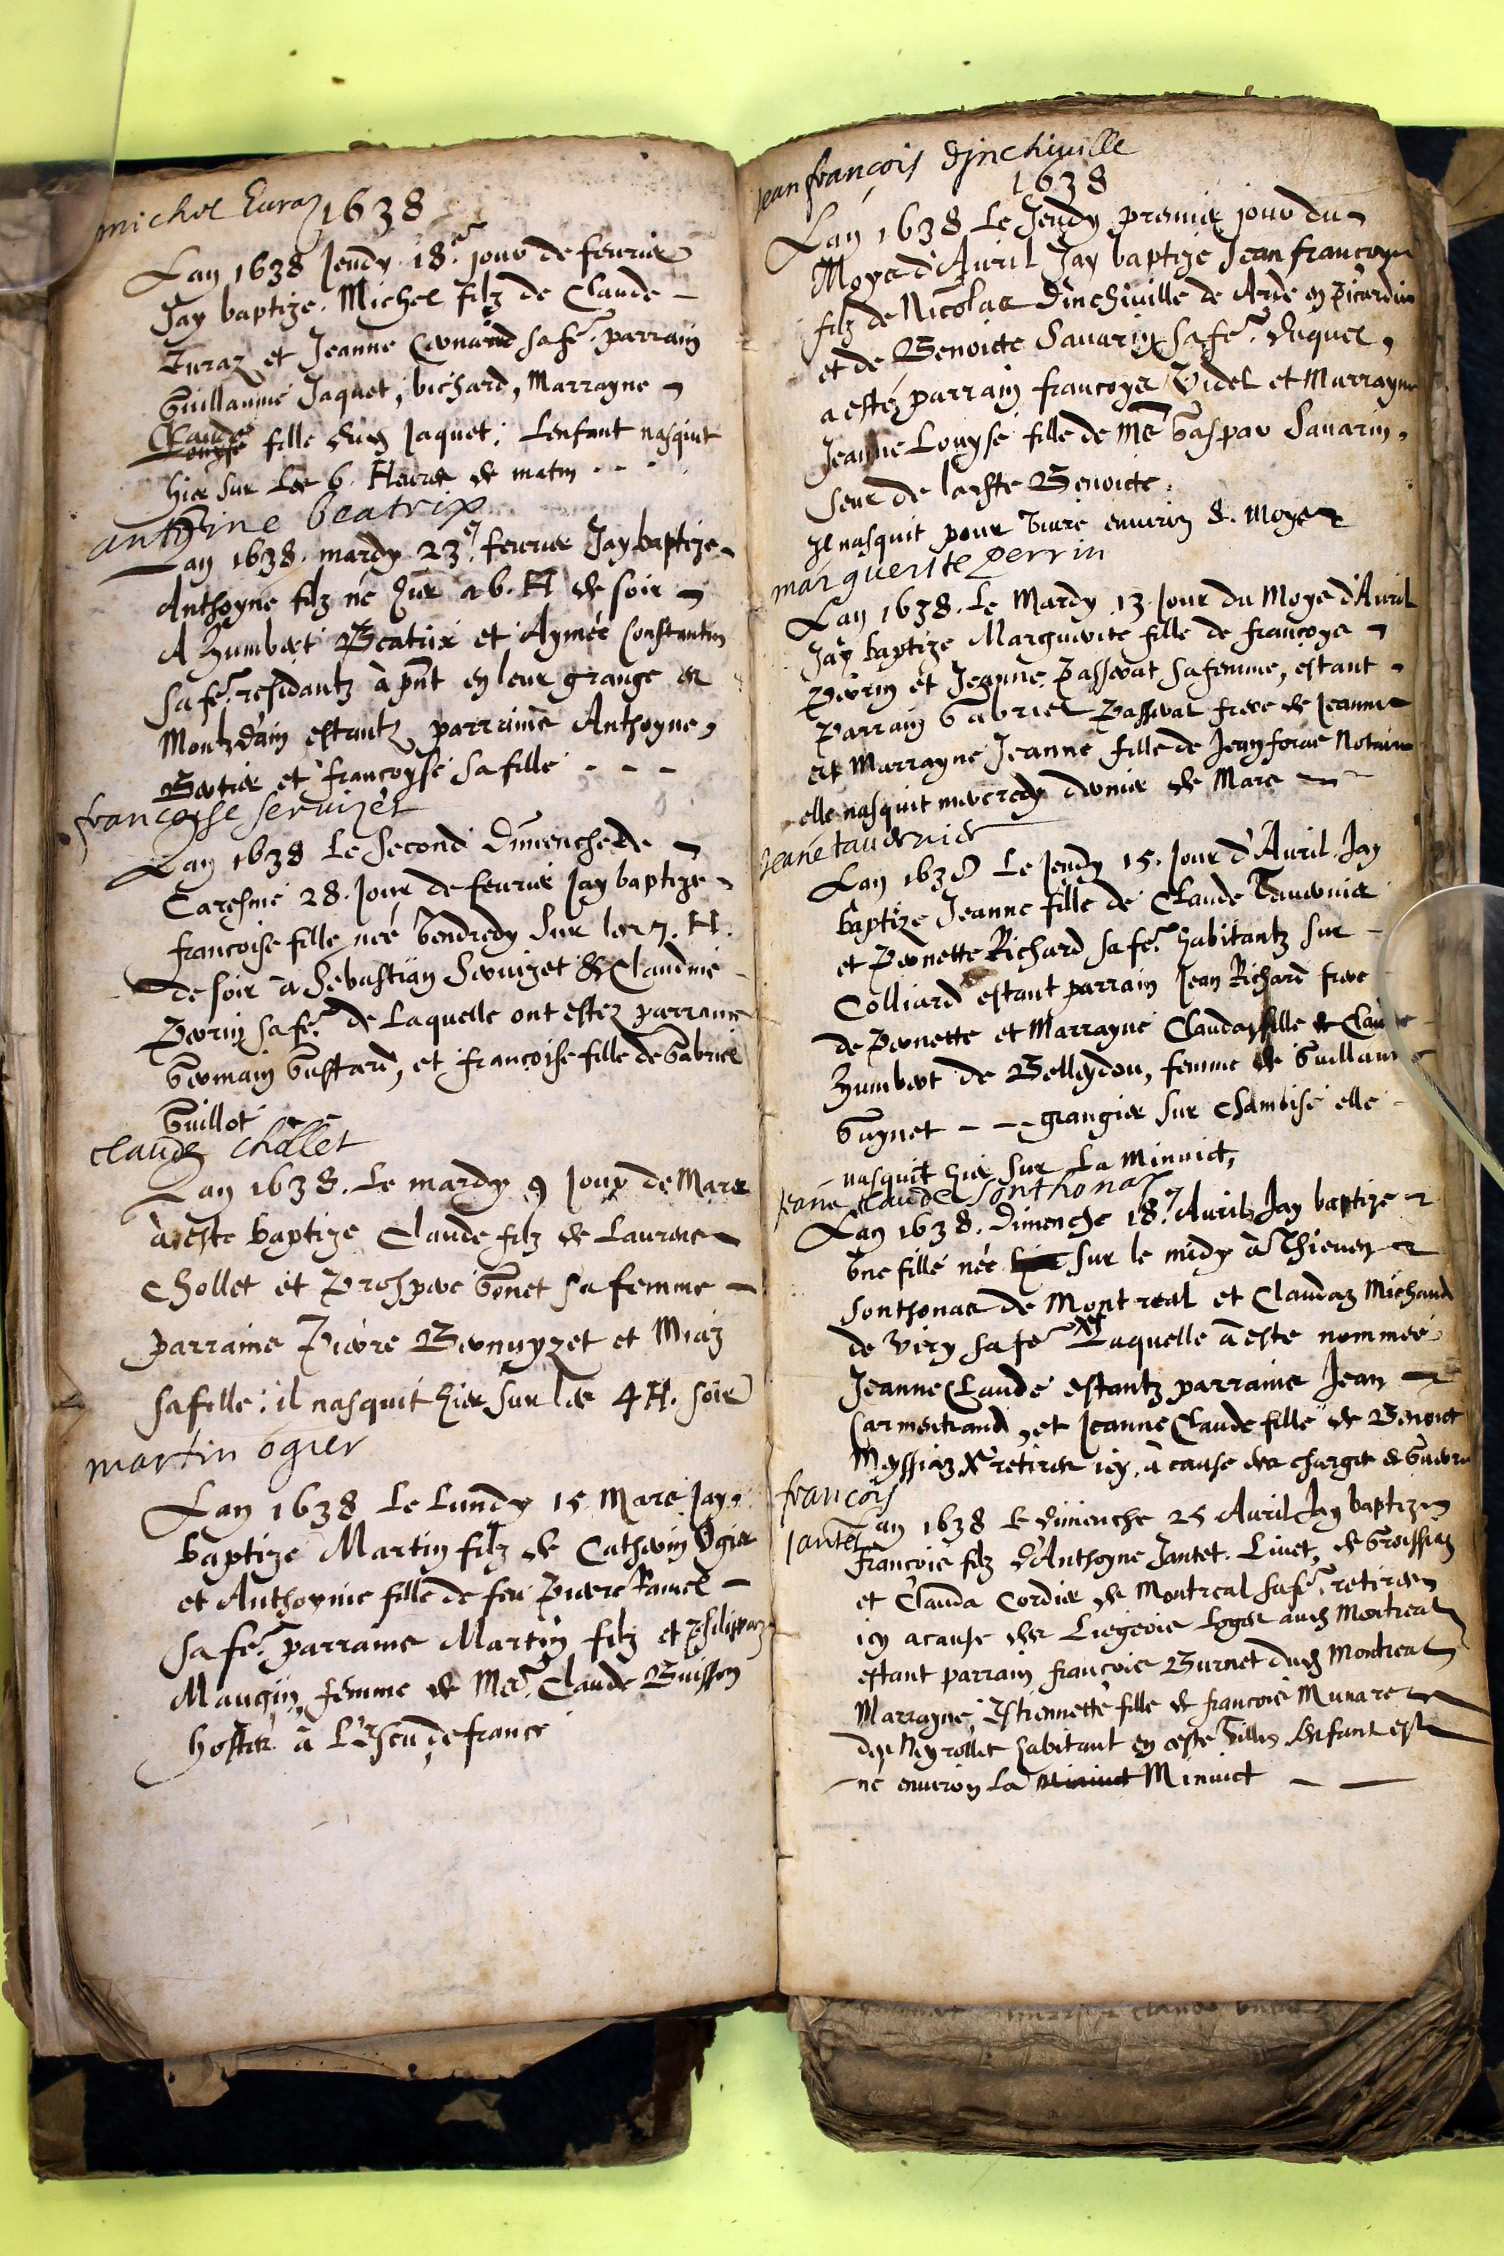 michel Euraz 1638
Lan 1638 Jeudy 18.e jour de feurier
Jay baptize. Michel filz de Claude
Euraz et Jeanne sa fe. parrain
Guillaume Jaquet, bichard, Marrayne
Claude Louyse fille dud Jaquet; Lenfant nasquit
hier sur Les 6. Heures de matin
anthoine beatrix
Lan 1638. mardy 23e. feurier Jay baptize
Anthoyne filz né hier a 6. H de soir
A humbert Beatrix et Aymée Constantin
sa fe. residantz à pnt en leur grange de
Montdain estantz parrains Anthoyne
et francoyse sa fille
francoyse seruizet
Lan 1638 Le second Dimenche de
Caresme 28. Jour de feurier Jay baptize
francoise fille née Vendredy Sur les 7. H.
de soir à Sebastian Seruizet & Claudine
Perrin sa fe. de Laquelle ont estez parrains
Germain Gustard, et francoise fille de Gabriel
Guillot
claude chollet
Lan 1638. Le mardy 9 Jour de Mars
à este baptize Claude filz de Laurens
Chollet et Prospere Gonet sa femme
parrains Pierre et Miaz
sa fille: il nasquit hier sur les 4 H. soir
martin ogier
Lan 1638 Le Lundy 15 Mars Jay
baptize Martin filz de Catherin Ogier
et Anthoynie fille de feu Pierre Ramel
sa fe. parrains Martin filz et Philippaz
Maugin femme de Me. Claude Buisson
hoste à L'Escu de france
Jean francois dinchiuille
1638
Lan 1638 Le Jeudy premier jour du
Moys d'Auril Jay baptize Jean francoys
filz de Nicolas Dinchiuille de Arde en Picardie
et de Benoicte Sauarin sa fe. duquel
a estéz parrain francoys Videl et Marrayne
Jeanne Louyse fille de Me Gaspar Sauarin,
seur de laditte Benoicte.
Il nasquit pour viure enuiron 8. Moys
marguerite perrin
Lan 1638. Le Mardy 13. Jour du Moys d'Auril
Jay baptize Marguerite fille de francoys
Perrin et Jeanne Passerat sa femme, estant
Parrain Gabriel Passerat frere de Jeanne
et Marrayne Jeanne fille de Jean foras Notaire
elle nasquit mercredy dernier de Mars
Jeane tauernier
Lan 1638 Le Jeudy 15. Jour d'Auril Jay
baptize Jeanne fille de Claude Tauernier
et Pernette Richard sa fe. habitantz sur
Colliard estant parrain Jean Richard frere
de Pernette et Marrayne Claudaz fille de Claude
humbert de Belleydou, femme de Guillaume
Guynet grangier sur Chamoise elle
nasquit hier sur La Minuict,
Jeane claude sonthonaz
Lan 1638. Dimenche 18.e Auril Jay baptize
Vne fille née hier sur le midy à Thieuen
Sonthonas de Montreal et Claudaz Michaud
de sa fe Laquelle à este nommée
Jeanne Claude estantz parrains Jean
Carmentrand, et Jeanne Claude fille de Benoict
Meyssiaz retirez icy, à cause des charges de Guerre
francois
Jantet
Lan 1638 Le dimenche 25 Auril Jay baptize
francois filz d'Anthoyne Jantet. Liuet, de Groissiaz
et Clauda Cordier de Montreal sa fe. retirez
icy acause des Liegeois logez aud Montreal
estant parrain francois Burnet dud Montreal
Marrayne Estiennette fille de francois Munaret
des Neyrolles habitant en ceste Ville. Lenfant est
né enuiron La Minuict Minuict